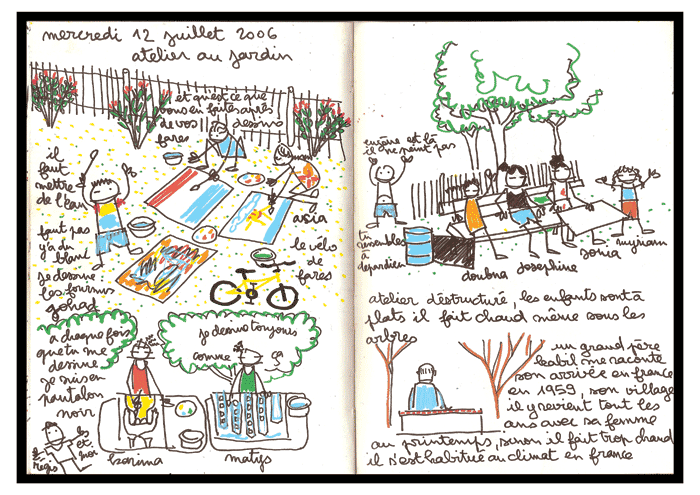 mercredi 12 juillet 2006
atelier au jardin
et qu'est ce que
vous en faites après
de vos dessins
fares
il
faut
mettre
de l'eau
faut pas
y'a du
blanc
je dessine
les fourmis
johad
asia
le vélo
de
fares
à chaque fois
que tu me
dessine
je suis en
pantalon
noir
je dessine toujours
comme ça
et
moi
régis
karima
matys
eugène est là
il ne peint pas
tu
ressembles
à
depardieu
doubna
josephine
sonia
myriam
atelier déstructuré, les enfants sont à
plats il fait chaud même sous les
arbres
un grand père
kabil me raconte
son arrivée en france
en 1959, son village
il y revient tout les
ans avec sa femme
au printemps, sinon il fait trop chaud
il s'est habitué au climat en france